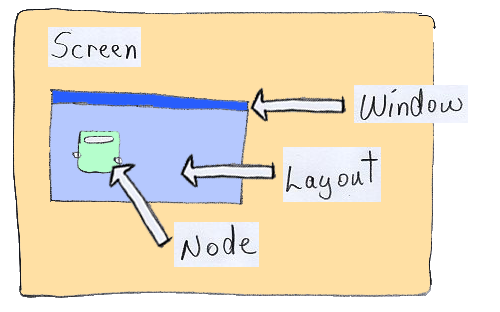 Screen
Window
Layout
Node